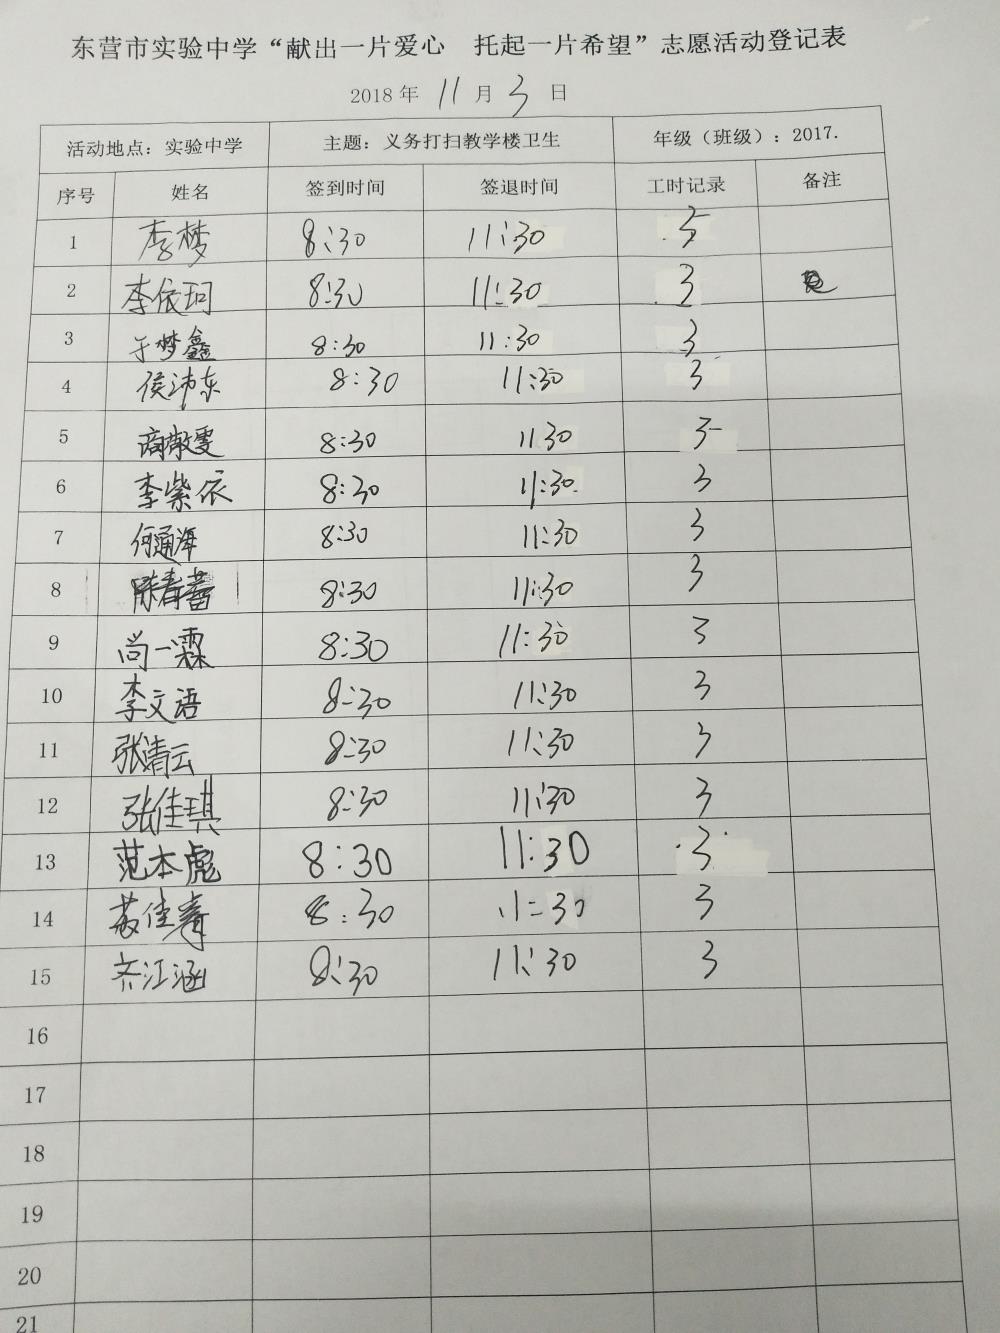 东营市实验中学“献出一片爱心 托起一片希望”志愿活动登记表
2018 年 11 月 3 日
活动地点：实验中学 主题：义务打扫教学楼卫生 年级（班级）：2017.
序号 姓名 签到时间 签退时间 工时记录 备注
1 李梦 8:30 11:30 3
2 李依珂 8:30 11:30 3
3 于梦鑫 8:30 11:30 3
4 侯沛东 8:30 11:30 3
5 商敬雯 8:30 11:30 3
6 李紫依 8:30 11:30 3
7 何通海 8:30 11:30 3
8 陈春蕾 8:30 11:30 3
9 尚一霖 8:30 11:30 3
10 李文语 8:30 11:30 3
11 张清云 8:30 11:30 3
12 张佳琪 8:30 11:30 3
13 范本彪 8:30 11:30 3
14 苏佳寿 8:30 11:30 3
15 齐江涵 8:30 11:30 3
16
17
18
19
20
21